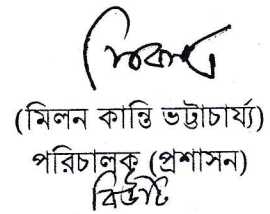 (মিলন কান্তি ভট্টাচার্য্য)
পরিচালক (প্রশাসন)